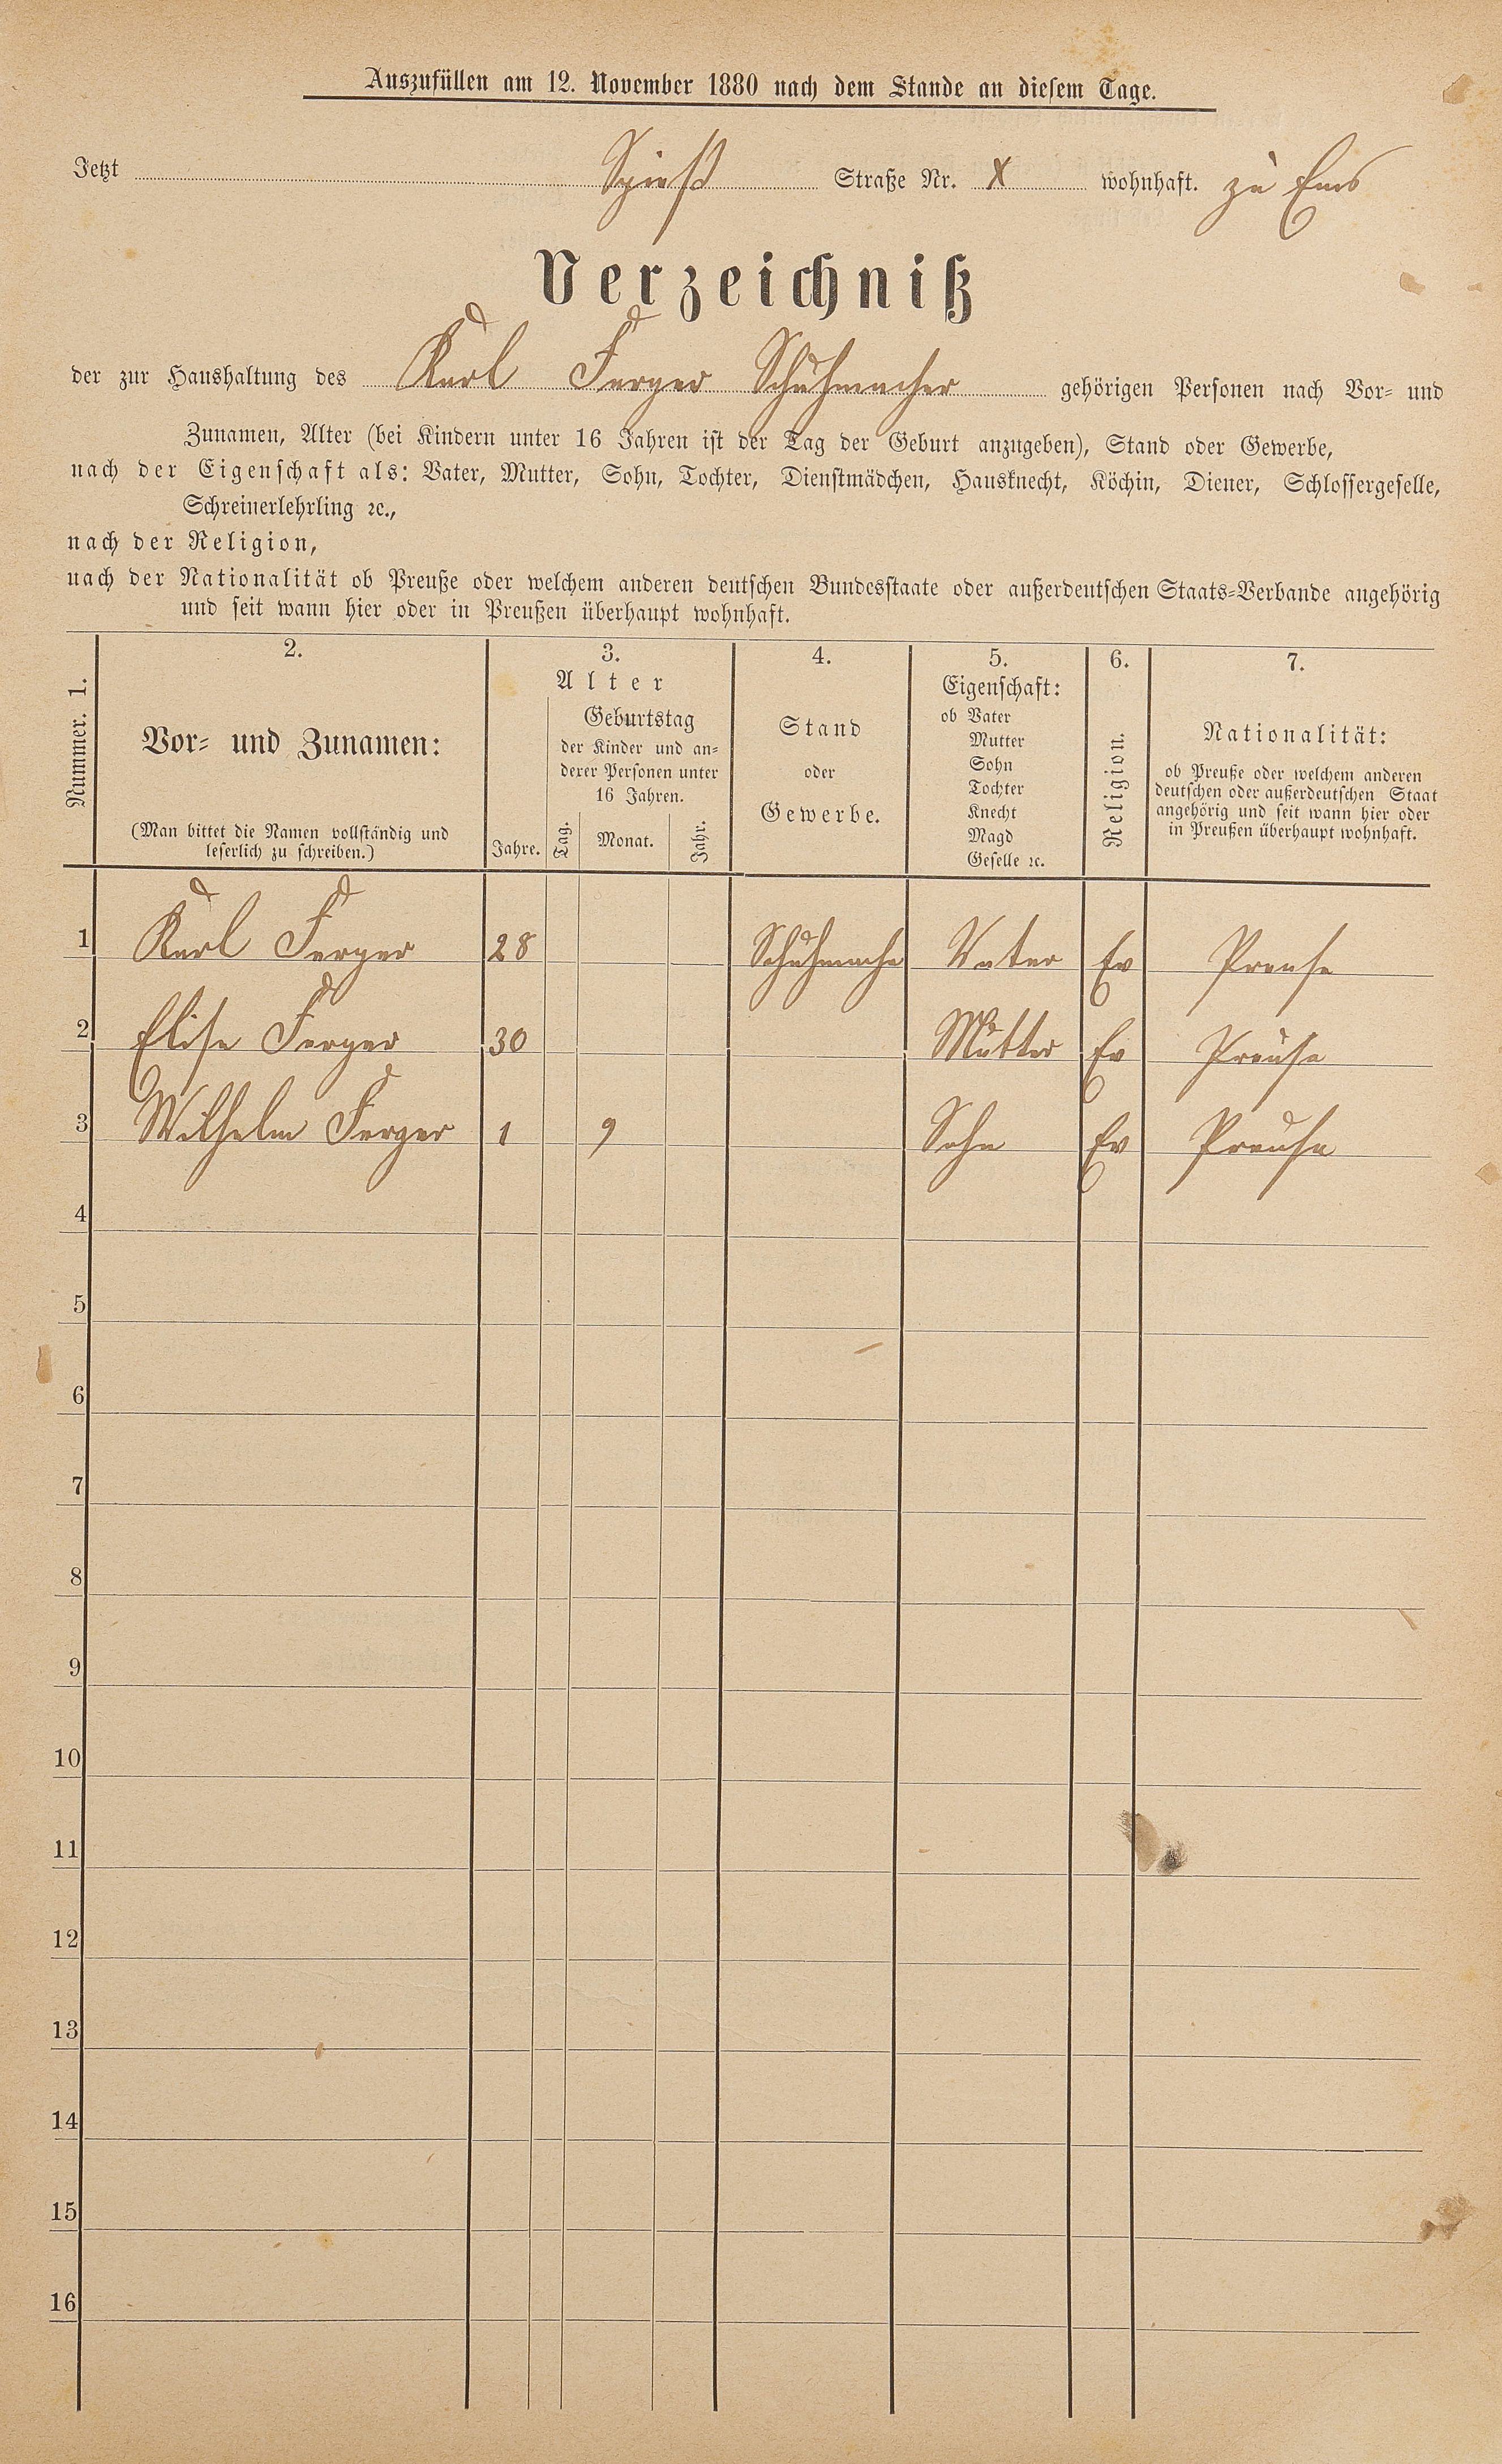 Auszufüllen am 12. November 1880 nach dem Stande an diesem Tage.
Jetzt Spieß Straße Nr. X wohnhaft. zu Ems
Verzeichniß
der zur Haushaltung des Karl Ferger Schuhmacher gehörigen Personen nach Vor- und
Zunamen, Alter (bei Kindern unter 16 Jahren ist der Tag der Geburt anzugeben), Stand oder Gewerbe,
nach der Eigenschaft als: Vater, Mutter, Sohn, Tochter, Dienstmädchen, Hausknecht, Köchin, Diener, Schlossergeselle,
Schreinerlehrling ꝛc.,
nach der Religion,
nach der Nationalität ob Preuße oder welchem anderen deutschen Bundesstaate oder außerdeutschen Staats-Verbande angehörig
und seit wann hier oder in Preußen überhaupt wohnhaft.
Nummer. 1.
2.
Vor- und Zunamen:
(Man bittet die Namen vollständig und
leserlich zu schreiben.)
3.
Alter
Jahre.
Geburtstag
der Kinder und an-
derer Personen unter
16 Jahren.
Tag. Monat. Jahr.
4.
Stand
oder
Gewerbe.
5.
Eigenschaft:
ob Vater
Mutter
Sohn
Tochter
Knecht
Magd
Geselle ꝛc.
6.
Religion.
7.
Nationalität:
ob Preuße oder welchem anderen
deutschen oder außerdeutschen Staat
angehörig und seit wann hier oder
in Preußen überhaupt wohnhaft.
1 Karl Ferger 28 Schuhmache Vater Ev Preuse
2 Elise Ferger 30 Mutter Ev Preuse
3 Wilhelm Ferger 1 9 Sohn Ev Preuse
4
5
6
7
8
9
10
11
12
13
14
15
16